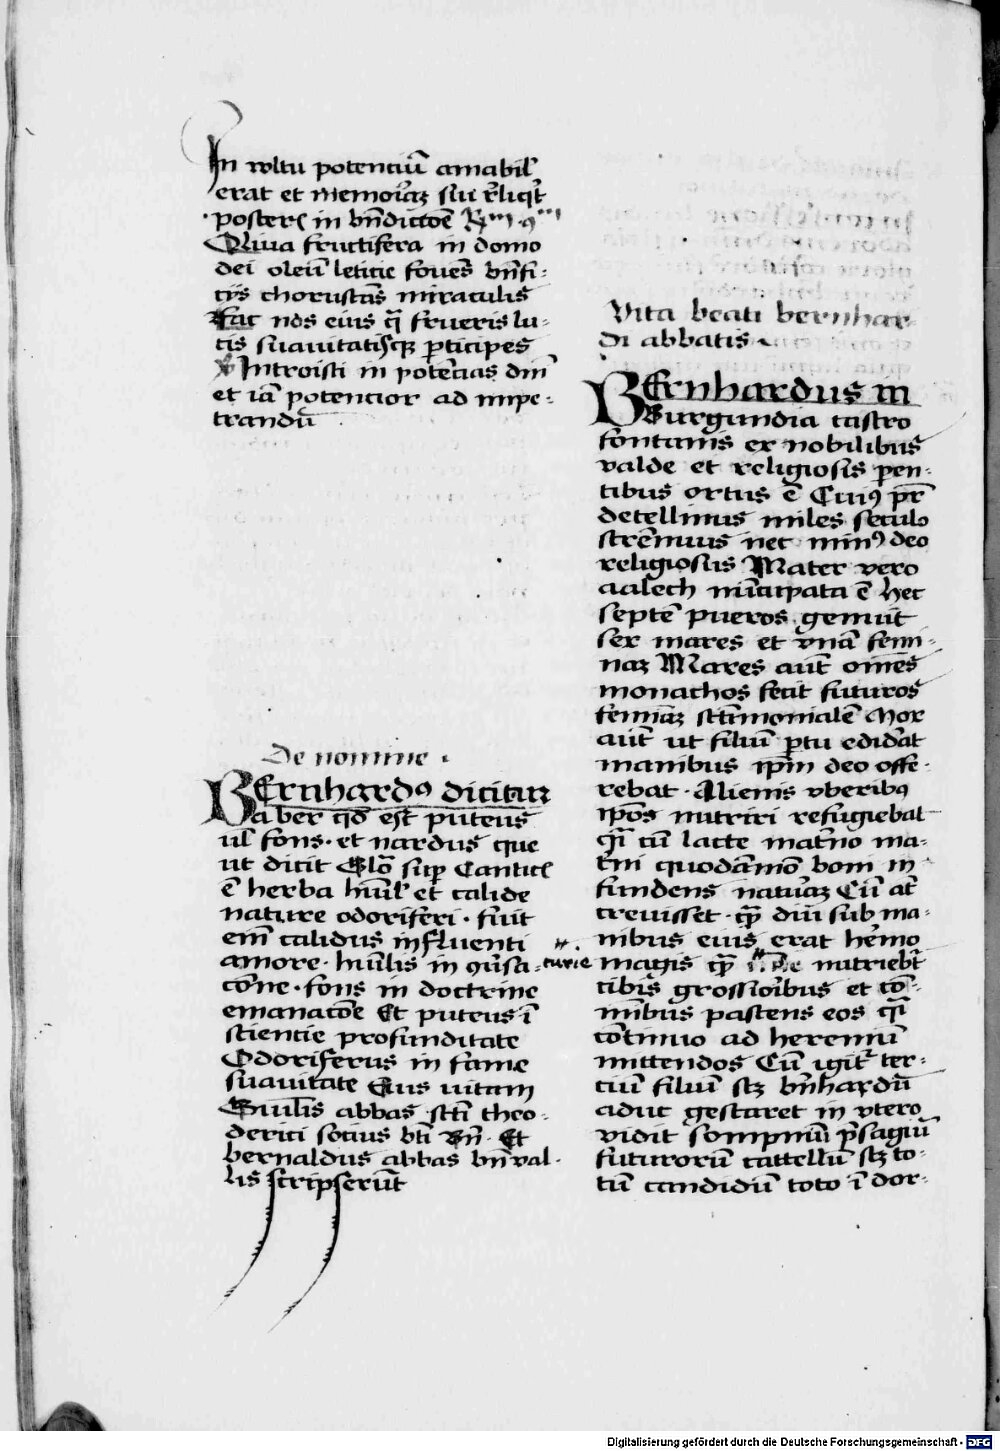 In wltu potenciū amabil'
erat et memoꝛiaꝫ sui reliqt
posteris in bn̄dictōe
Oliua fructifera in domo
dei oleū leticie fouens bn̄fi-
cijs choruscās miraculis
fac nos eius q̄ frueris lu-
cis suauitatisqꝫ ꝑticipes
Introisti in potēcias dnī
et iā potencior ad impe-
trandū
De nomine
BErnhardꝰ dicitur
a ber qd est puteus
uel fons · et nardus que
ut dicit Glō suꝑ Cantic
ē herba hūil' et calide
nature odoriferi · fuit
em̄ calidus influenti
amore · huīlis in ꝯuersa-
cōne · fons in doctrine
emanacōe Et puteus ī
sciencie profunditate
Odoriferus in fame
suauitate Eius uitam
Guilīs abbas scti theo-
derici socius bti Bn̄ · Et
bernaldus abbas bn̄ual-
lis scripserūt
Vita beati bernhar-
di abbatis
BErnhardus in
Burgundia castro
fontanis ex nobilibus
valde et religiosis ꝑen-
tibus ortus ē Cuiꝰ pr̄
decellinus miles seculo
strēnuus nec minꝰ deo
religiosus Mater vero
aalech nūcupata ē Hec
septē pueros genuit
sex mares et vnā femi-
naꝫ Mares aūt om̄es
monachos fecit futuros
feminaꝫ sctīmonialē Mox
aūt ut filiū ꝑtu edidat
manibus ip̄m deo offe-
rebat · Alienis vberibꝰ
ip̄os nutriri refugiebat
q̄i cū lacte mat̄no ma-
t̄ni quodāmō boni in-
fundens natuꝛaꝫ Cū at̄
creuisset · q̄ diu sub ma-
nibus eius erat hēmo
magis q̄ curie nutriebt̄
cibis grossioꝛibus et cō-
mūibus pastens eos q̄i
cōtinuo ad heremū
mittendos Cū igit̄ ter-
ciū filiū scꝫ bn̄hardū
aduc gestaret in vtero
vidit sompniū p̄sagiū
futurorū cattellū scꝫ to-
tū candidū toto ī dor-
Digitalisierung gefördert durch die Deutsche Forschungsgemeinschaft - DFG